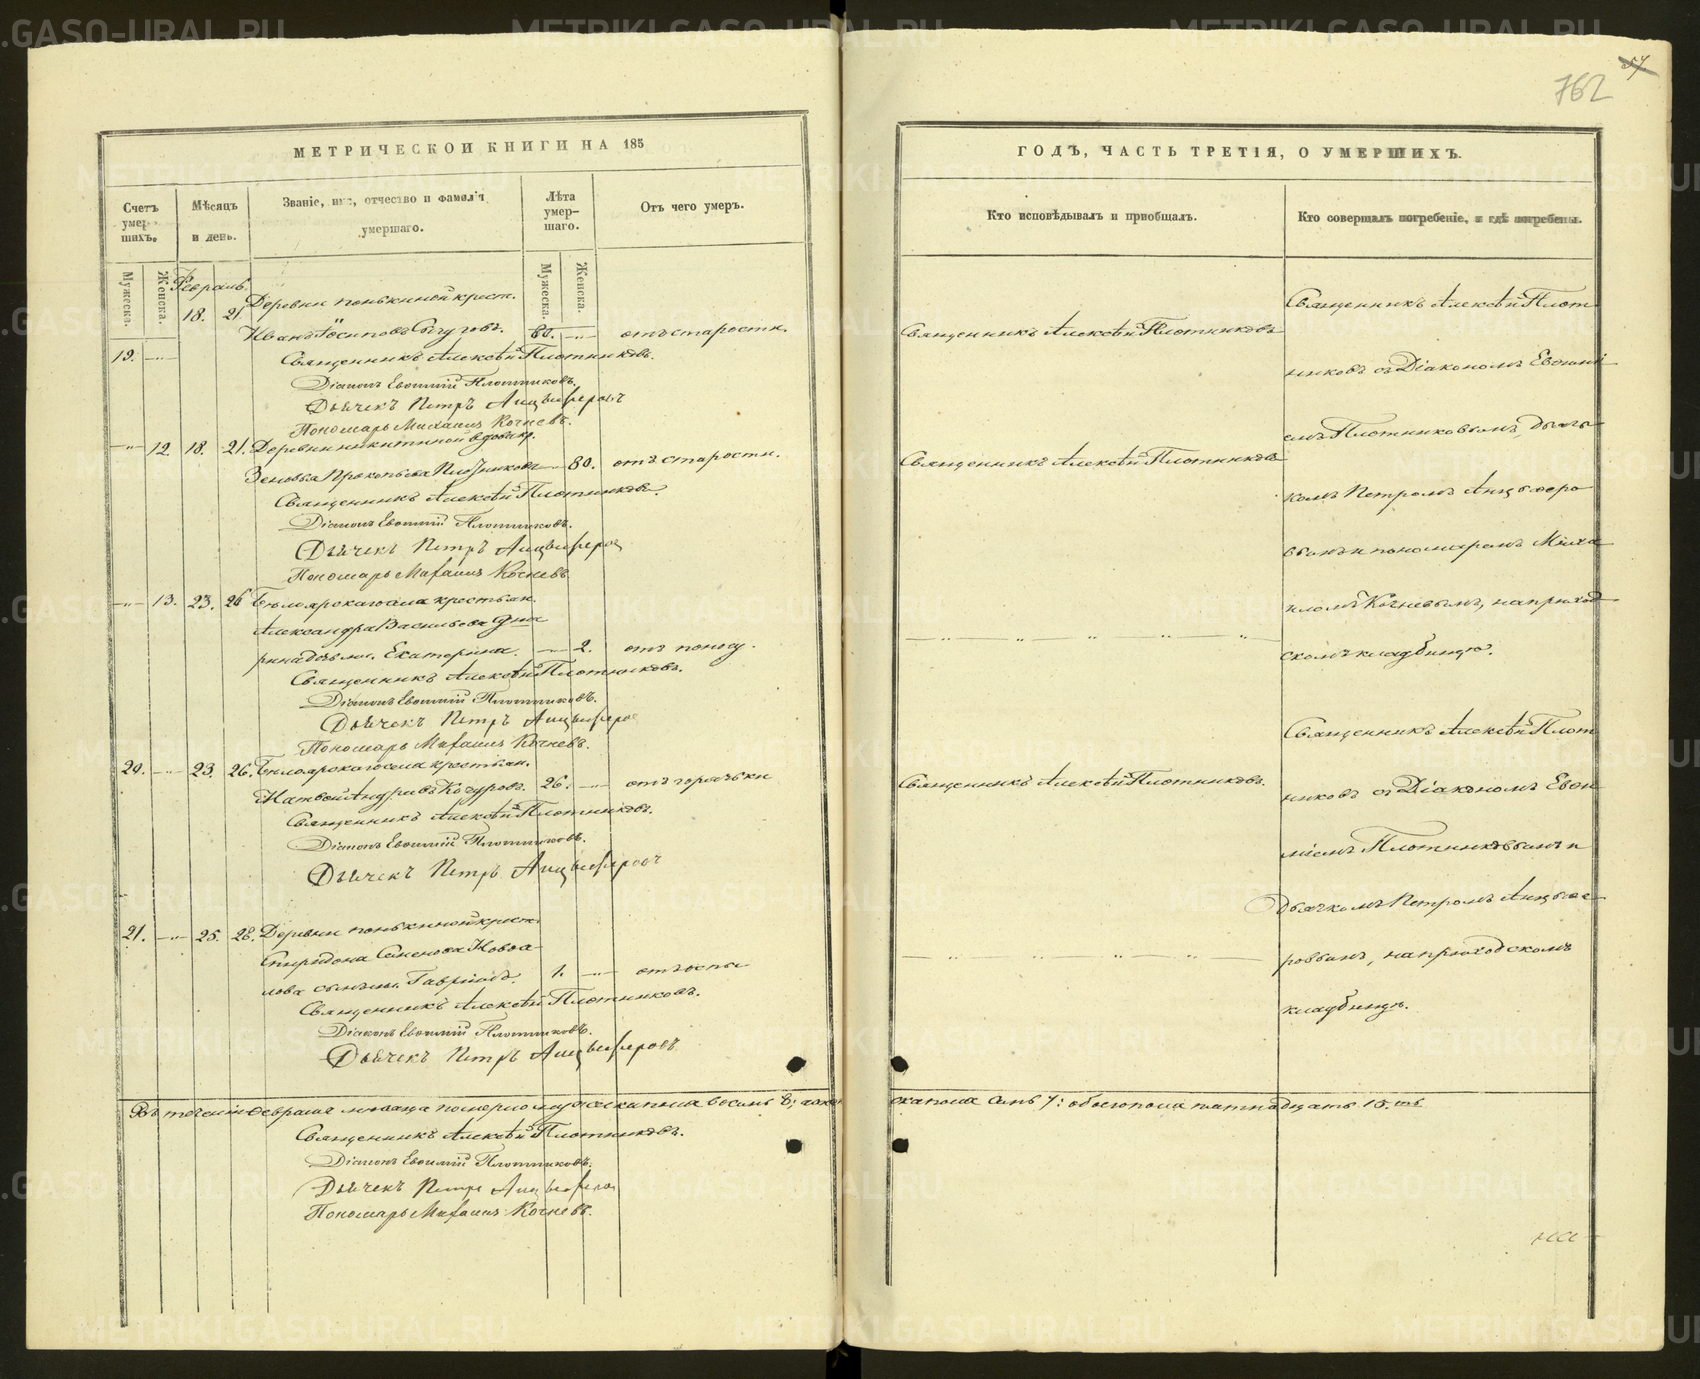 57.
762
МЕТРИЧЕСКОЙ КНИГИ НА 185
Счетъ умершихъ.
Мѣсяцъ и день.
Званіе, имя, отчество и фамилія умершаго.
Лѣта умершаго.
Отъ чего умеръ.
Мужеска.
Женска.
Мужеска.
Женска.
Февраль
18. 21. Деревни понькиной крест.
Иванъ Іосиповъ 80. отъ старости.
19.
Священникъ Алексѣй Плотниковъ.
Діаконъ Евѳимій Плотниковъ.
Дьячекъ Петръ Анцыферовъ
Пономарь Михаилъ Кочневъ.
12. 18. 21. Деревни никитиной вдова кр.
Зеновья Прокопьева 80. отъ старости.
Священникъ Алексѣй Плотниковъ.
Діаконъ Евѳимій Плотниковъ.
Дьячекъ Петръ Анцыферов
Пономарь Михаилъ Кочневъ.
13. 23. 26 Бѣлоярскаго села крестьян.
Александра Васильева
дочь Екатерина. 2. отъ поносу.
Священникъ Алексѣй Плотниковъ.
Діаконъ Евѳимій Плотниковъ.
Дьячекъ Петръ Анцыферов
Пономарь Михаилъ Кочневъ.
20. 23. 26. Бѣлоярскаго села крестьян.
Матвей Андріевъ 26. отъ горячки
Священникъ Алексѣй Плотниковъ.
Діаконъ Евѳимій Плотниковъ.
Дьячекъ Петръ Анцыферовъ
21. 25. 28. Деревни понькиной крест.
Спиридона Семенова
сынъ Гавріилъ. 1. отъ оспы
Священникъ Алексѣй Плотниковъ.
Діаконъ Евѳимій Плотниковъ.
Дьячекъ Петръ Анцыферовъ
Въ теченіи Февраля мѣсяца померло мужеска пола восемь 8; жен
Священникъ Алексѣй Плотниковъ.
Діаконъ Евѳимій Плотниковъ.
Дьячекъ Петръ Анцыферов
Пономарь Михаилъ Кочневъ.
ГОДЪ, ЧАСТЬ ТРЕТІЯ, О УМЕРШИХЪ.
Кто исповѣдывалъ и пріобщалъ.
Кто совершалъ погребеніе, и гдѣ погребены.
Священникъ Алексѣй Плотниковъ
Священникъ Алексѣй Плотниковъ
Священникъ Алексѣй Плотниковъ.
Священникъ Алексѣй Плот
никовъ съ Діакономъ Евѳимі
емъ Плотниковымъ, дьяч
комъ Петромъ Анцыферо
вымъ и пономаремъ Миха
иломъ Кочневымъ, на приход
скомъ кладбищѣ.
Священникъ Алексѣй Плот
никовъ съ Діакономъ Евѳи
міемъ Плотниковымъ и
дьячкомъ Петромъ Анцыфе
ровымъ, на приходскомъ
кладбищѣ.
ска пола семь 7: обоего пола пятнадцать 15.ть
METRIKI.GASO-URAL.RU